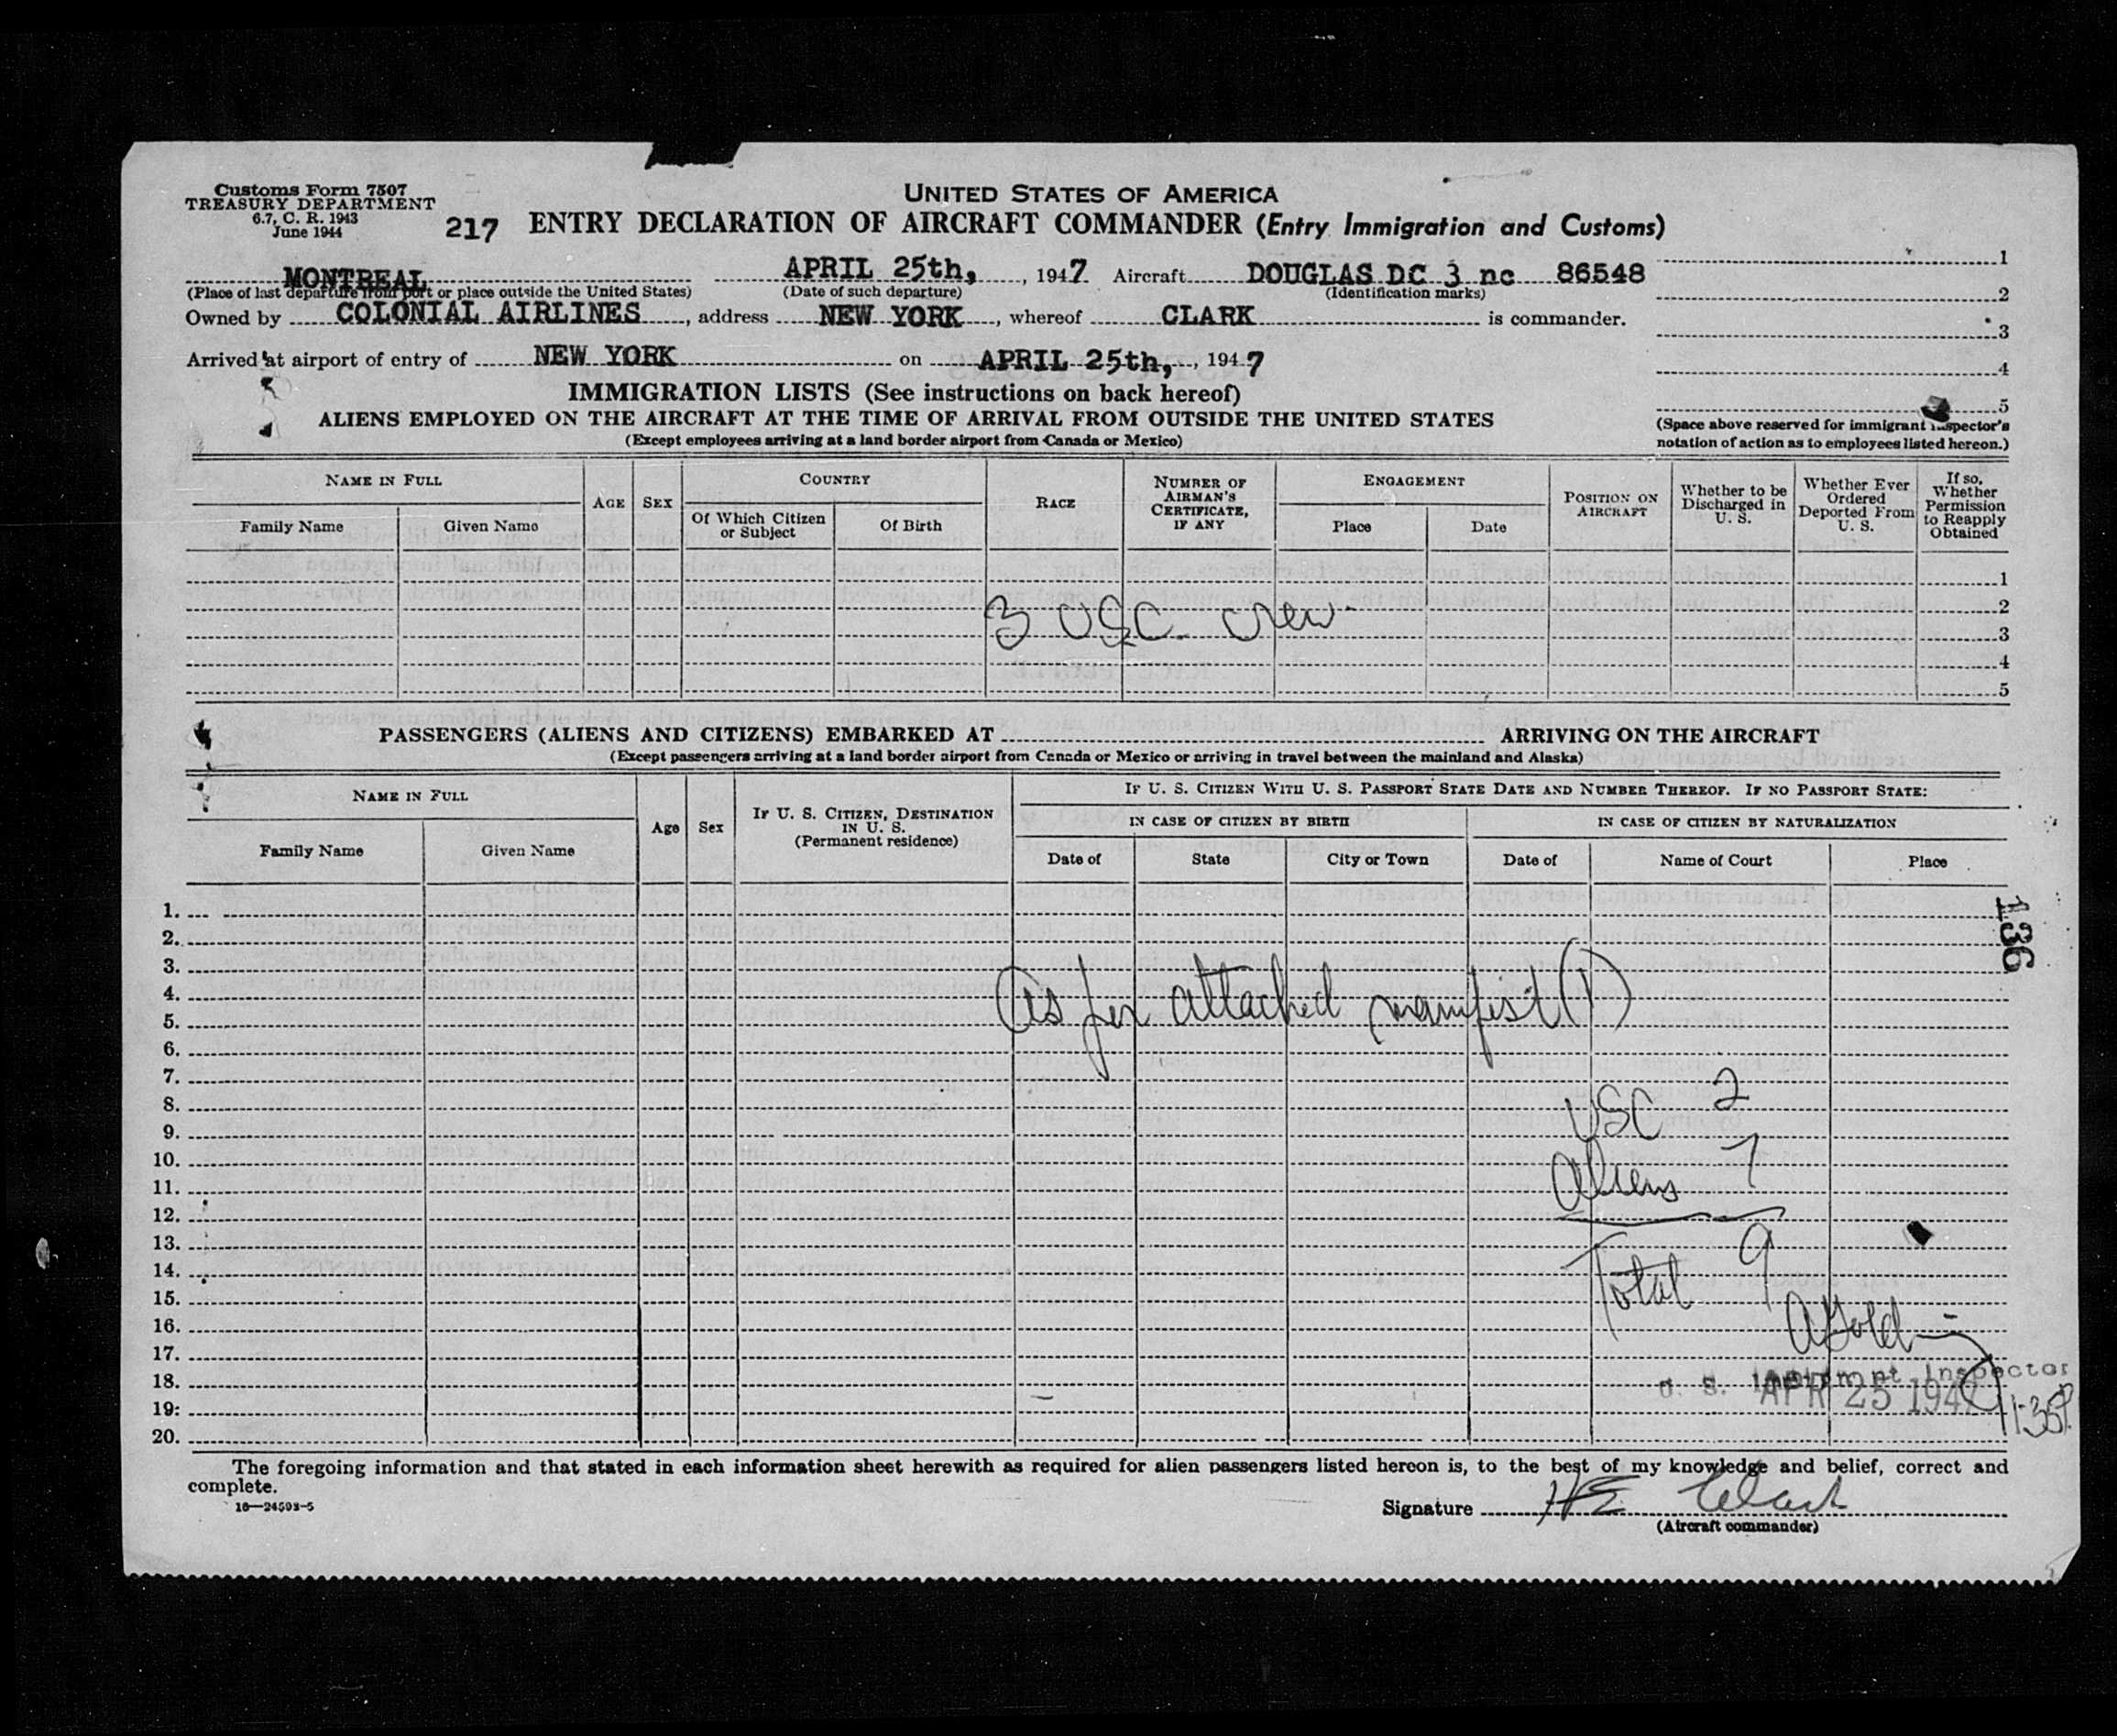 Customs Form 7507
TREASURY DEPARTMENT
6.7, C. R. 1943
June 1944
UNITED STATES OF AMERICA
217 ENTRY DECLARATION OF AIRCRAFT COMMANDER (Entry Immigration and Customs)
MONTREAL APRIL 25th, , 1947 Aircraft DOUGLAS DC 3 nc 86548
(Place of last departure from port or place outside the United States) (Date of such departure) (Identification marks)
Owned by COLONIAL AIRLINES , address NEW YORK , whereof CLARK is commander.
Arrived at airport of entry of NEW YORK on APRIL 25th, , 1947
1
2
3
4
5
(Space above reserved for immigrant inspector's
notation of action as to employees listed hereon.)
IMMIGRATION LISTS (See instructions on back hereof)
ALIENS EMPLOYED ON THE AIRCRAFT AT THE TIME OF ARRIVAL FROM OUTSIDE THE UNITED STATES
(Except employees arriving at a land border airport from Canada or Mexico)
NAME IN FULL
Family Name
Given Name
AGE
SEX
COUNTRY
Of Which Citizen
or Subject
Of Birth
RACE
NUMBER OF
AIRMAN'S
CERTIFICATE,
IF ANY
ENGAGEMENT
Place
Date
POSITION ON
AIRCRAFT
Whether to be
Discharged in
U. S.
Whether Ever
Ordered
Deported From
U. S.
If so,
Whether
Permission
to Reapply
Obtained
1
2
3 USC. crew
3
4
5
PASSENGERS (ALIENS AND CITIZENS) EMBARKED AT ARRIVING ON THE AIRCRAFT
(Except passengers arriving at a land border airport from Canada or Mexico or arriving in travel between the mainland and Alaska)
NAME IN FULL
Family Name
Given Name
Age
Sex
IF U. S. CITIZEN, DESTINATION
IN U. S.
(Permanent residence)
IF U. S. CITIZEN WITH U. S. PASSPORT STATE DATE AND NUMBER THEREOF. IF NO PASSPORT STATE:
IN CASE OF CITIZEN BY BIRTH
Date of
State
City or Town
IN CASE OF CITIZEN BY NATURALIZATION
Date of
Name of Court
Place
136
1.
2.
3.
4.
As per attached manifest (1)
5.
6.
7.
8.
USC 2
9.
10.
Aliens 7
11.
12.
13.
14.
Total 9
15.
16.
17.
18.
U. S. Immigrant Inspector
APR 25 1947
19.
1:35P.
20.
The foregoing information and that stated in each information sheet herewith as required for alien passengers listed hereon is, to the best of my knowledge and belief, correct and
complete.
16—24593-5
Signature HE Clark
(Aircraft commander)